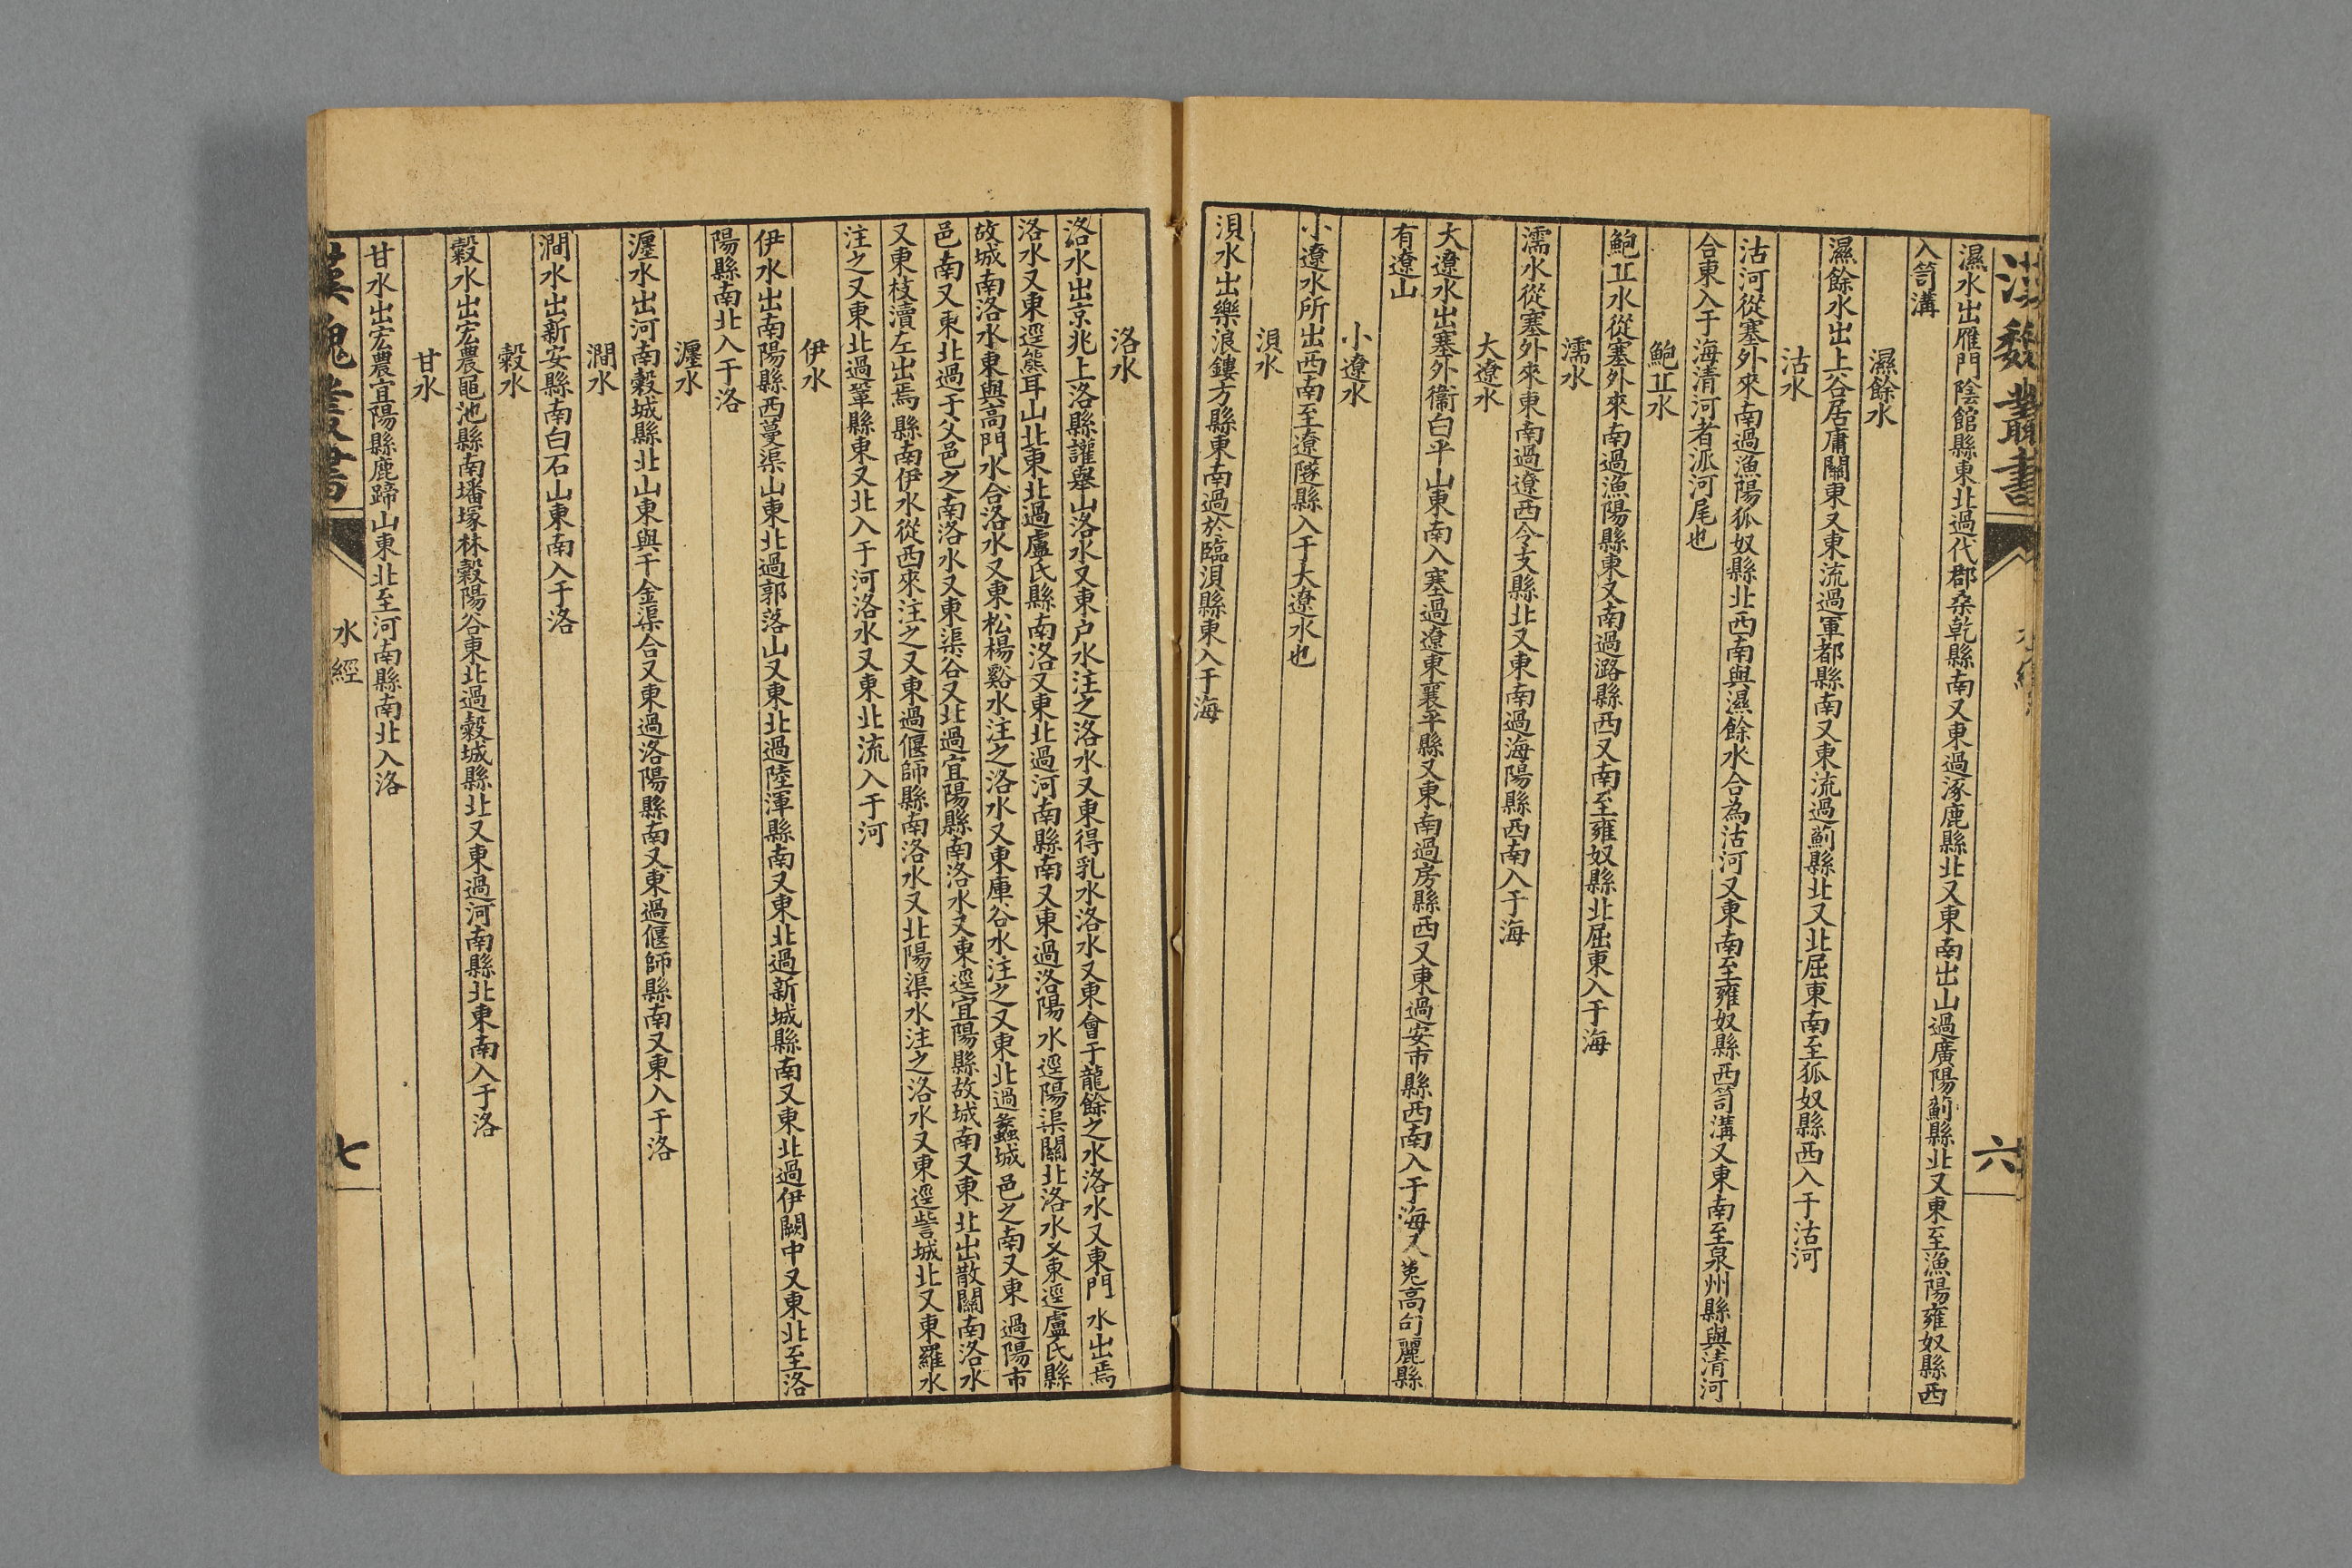 漢魏叢書
六
濕水出雁門陰館縣東北過代郡桑乾縣南又東過涿鹿縣北又東南出山過廣陽薊縣北又東至漁陽雍奴縣西
入笥溝
濕餘水
濕餘水出上谷居庸關東又東流過軍都縣南又東流過薊縣北又北屈東南至狐奴縣西入于沽河
沽水
沽河從塞外來南過漁陽狐奴縣北西南與濕餘水合為沽河又東南至雍奴縣西笥溝又東南至泉州縣與清河
合東入于海清河者派河尾也
鮑丘水
鮑丘水從塞外來南過漁陽縣東又南過潞縣西又南至雍奴縣北屈東入于海
濡水
濡水從塞外來東南過遼西令支縣北又東南過海陽縣西南入于海
大遼水
大遼水出塞外衞白平山東南入塞過遼東襄平縣又東南過房縣西又東過安市縣西南入于海又菟高句麗縣
有遼山
小遼水
小遼水所出西南至遼隧縣入于大遼水也
浿水
浿水出樂浪鏤方縣東南過於臨浿縣東入于海
洛水
洛水出京兆上洛縣讙舉山洛水又東户水注之洛水又東得乳水洛水又東會于龍餘之水洛水又東門水出焉
洛水又東逕熊耳山北東北過盧氏縣南洛又東北過河南縣南又東過洛陽水逕陽渠關北洛水又東逕盧氏縣
故城南洛水東與高門水合洛水又東松楊谿水注之洛水又東庫谷水注之又東北過蠡城邑之南又東過陽市
邑南又東北過于父邑之南洛水又東渠谷又北過宜陽縣南洛水又東逕宜陽縣故城南又東北出散關南洛水
又東枝瀆左出焉縣南伊水從西來注之又東過偃師縣南洛水又北陽渠水注之洛水又東逕訾城北又東羅水
注之又東北過鞏縣東又北入于河洛水又東北流入于河
伊水
伊水出南陽縣西蔓渠山東北過郭落山又東北過陸渾縣南又東北過新城縣南又東北過伊闕中又東北至洛
陽縣南北入于洛
瀍水
瀍水出河南穀城縣北山東與千金渠合又東過洛陽縣南又東過偃師縣南又東入于洛
澗水
澗水出新安縣南白石山東南入于洛
穀水
穀水出宏農黽池縣南墦塚林穀陽谷東北過穀城縣北又東過河南縣北東南入于洛
甘水
甘水出宏農宜陽縣鹿蹄山東北至河南縣南北入洛
漢魏叢書
水經
七